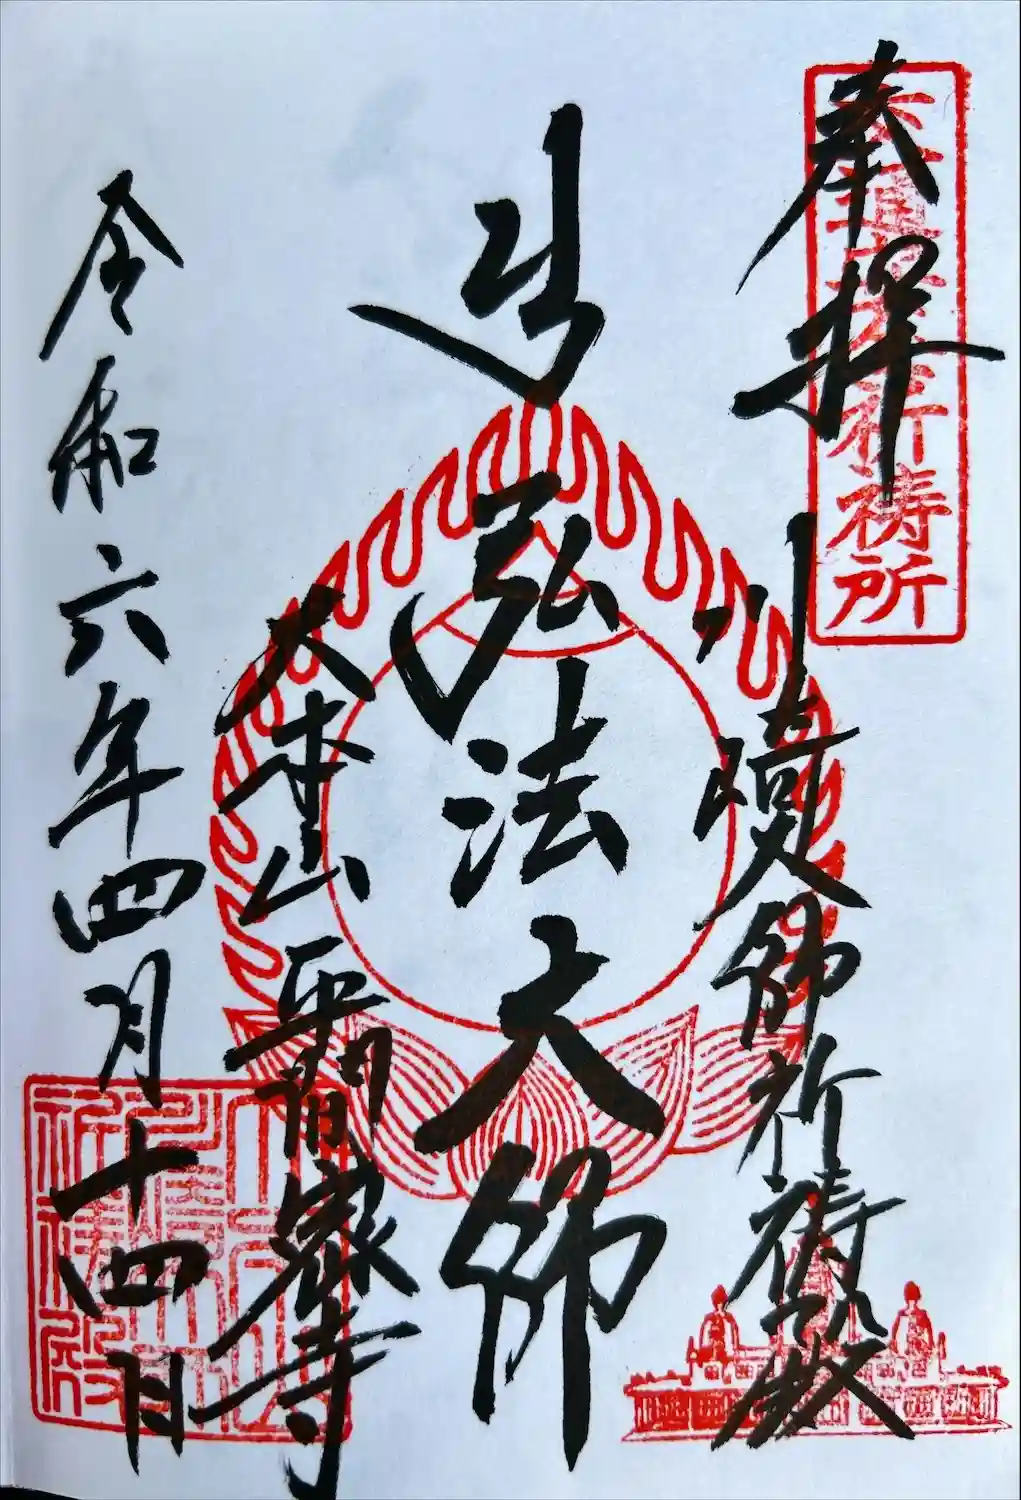 奉拝
交通安全祈祷所
川崎大師祈祷殿
弘法大師
大本山平間寺
令和六年四月十四日